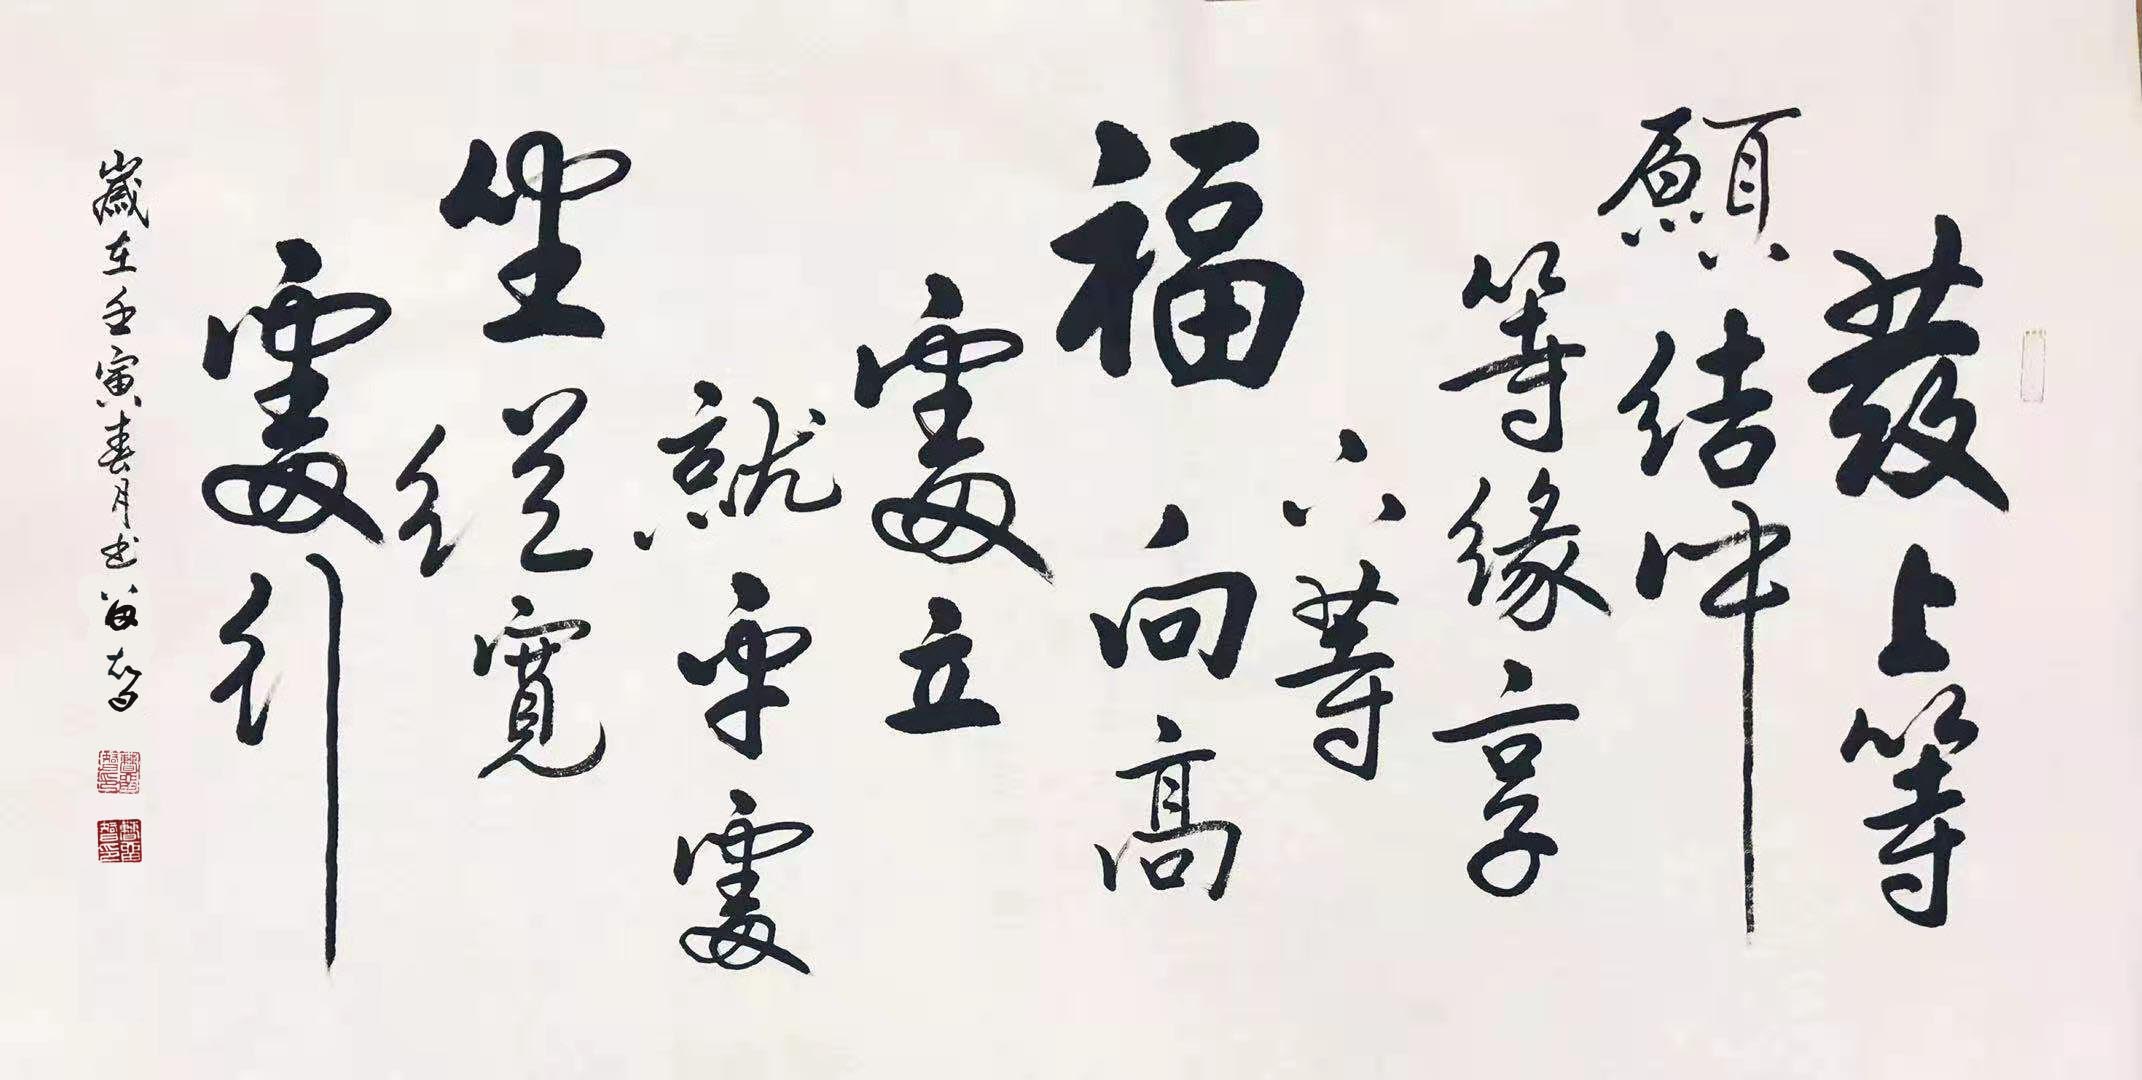 發上等
願結中
等緣享
下等
福向高
處立
就平處
坐從寬
處行
歲在壬寅春月書